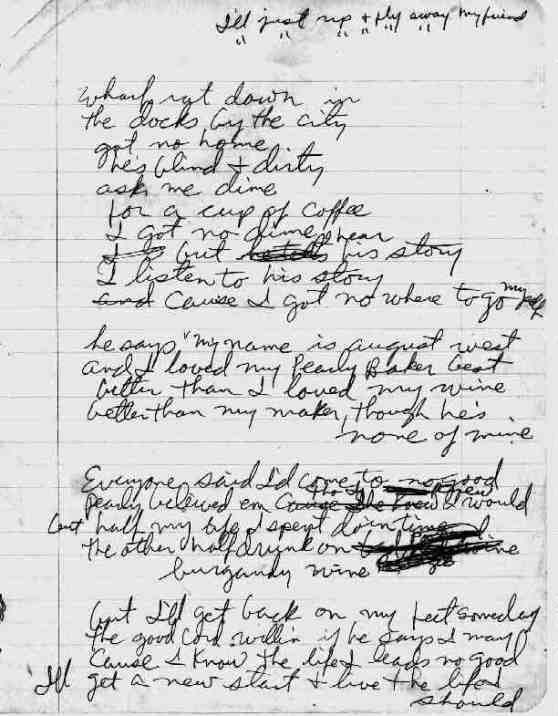 I'll just up + fly away my friend
" " " " "
wharf rat down in
the docks by the city
got no home
he's blind + dirty
ask me dime
for a cup of coffee
I got no dime
I but he tells I hear his story
I listen to his story
and Cause I got no where to go my self
he says "my name is august west
and I loved my Pearly Baker best
better than I loved my wine
better than my maker, though he's
none of mine
Everyone said I'd come to no good
pearly believed em Cause She knew I would
but half my life I spent doin time
the other half drunk on
burgundy wine
but I'll get back on my feet someday
the good Lord willin if he says I may
Cause I know the life I leads no good
I'll get a new start + live the life I
should